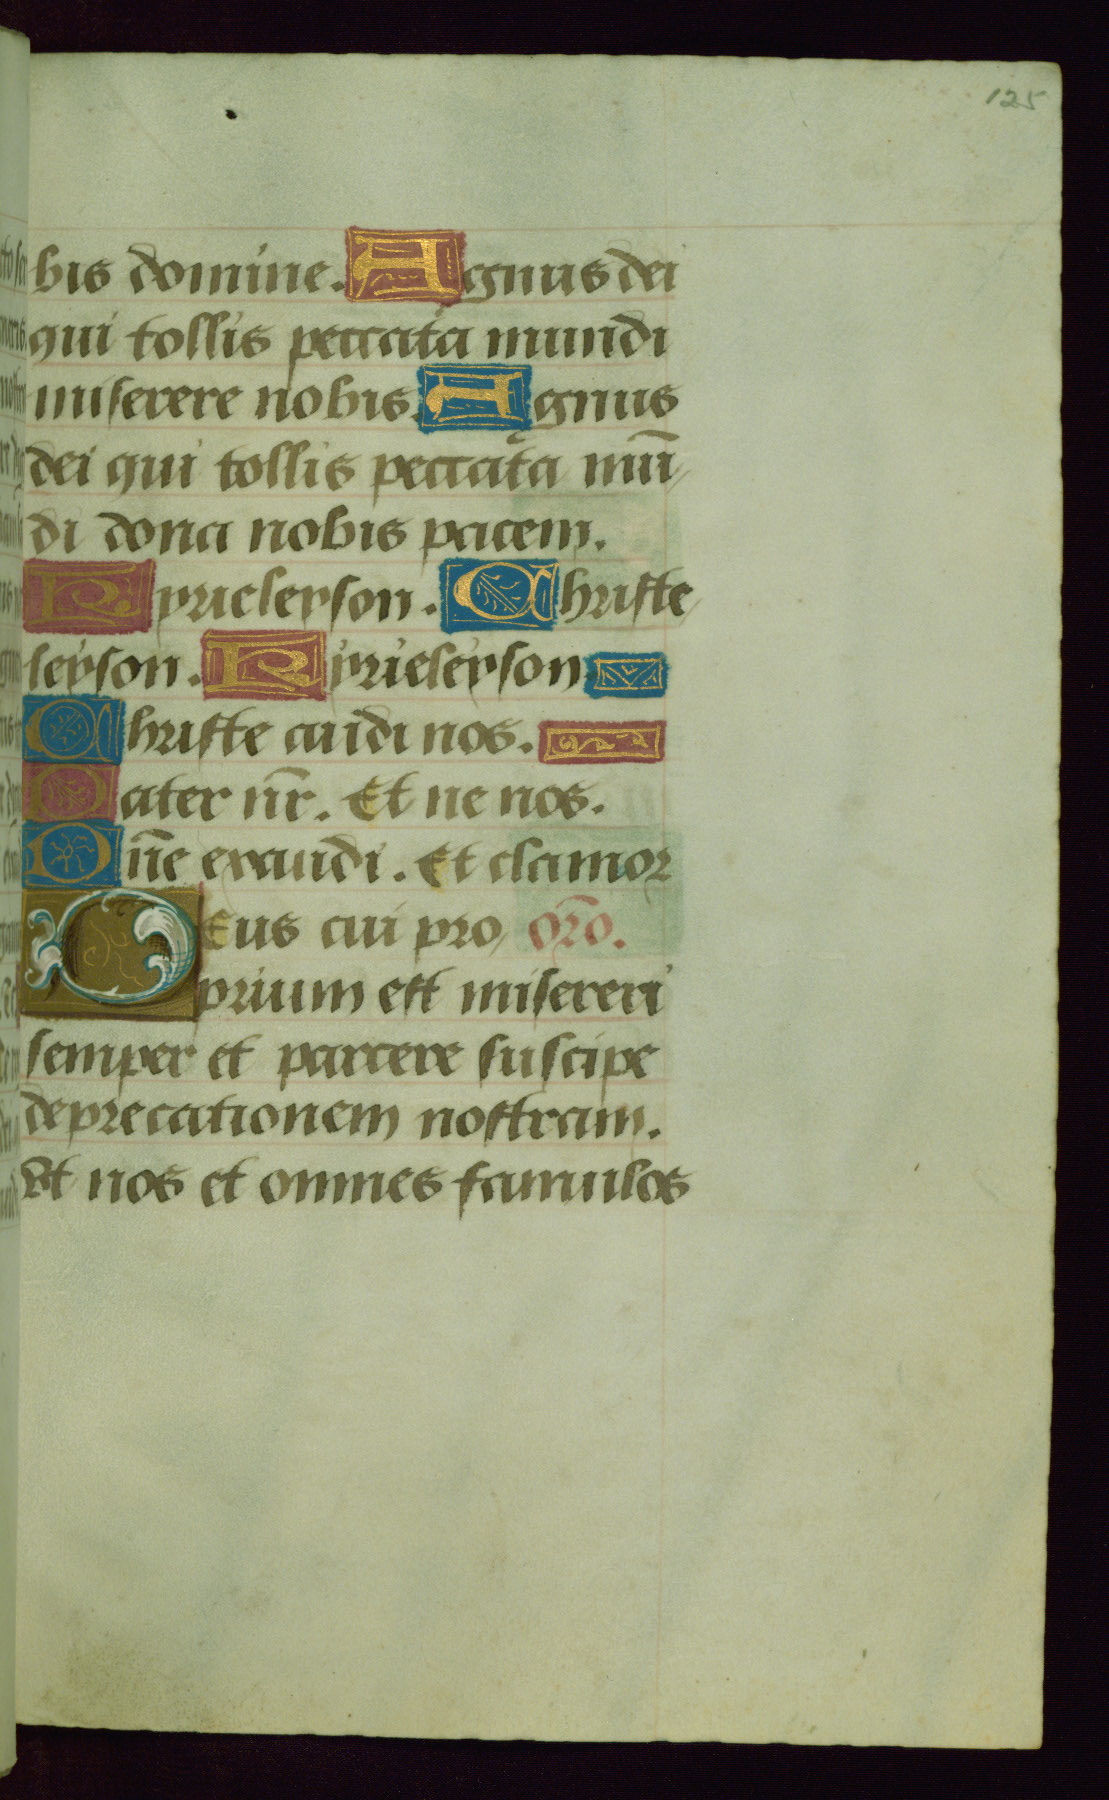 125
bis domine. Agnus dei
qui tollis peccata mundi
miserere nobis. Agnus
dei qui tollis peccata mūn
di dona nobis pacem.
Kyrieleyson. Christe
leyson. Kyrieleyson
Christe audi nos.
Pater nr̄. Et ne nos.
Dn̄e exaudi. Et clamor
Deus cui pro or̄o.
prium est misereri
semper et parcere suscipe
deprecationem nostram.
Et nos et omnes famulos